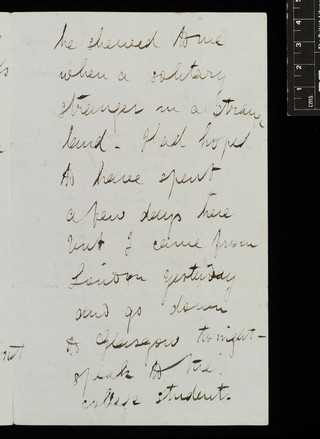 he shewed to me
when a solitary
stranger in a strange
land - I had hoped
to have spent
a few days here
but I came from
London yesterday
and go down
to Glasgow tonight -
speak to the
college students.